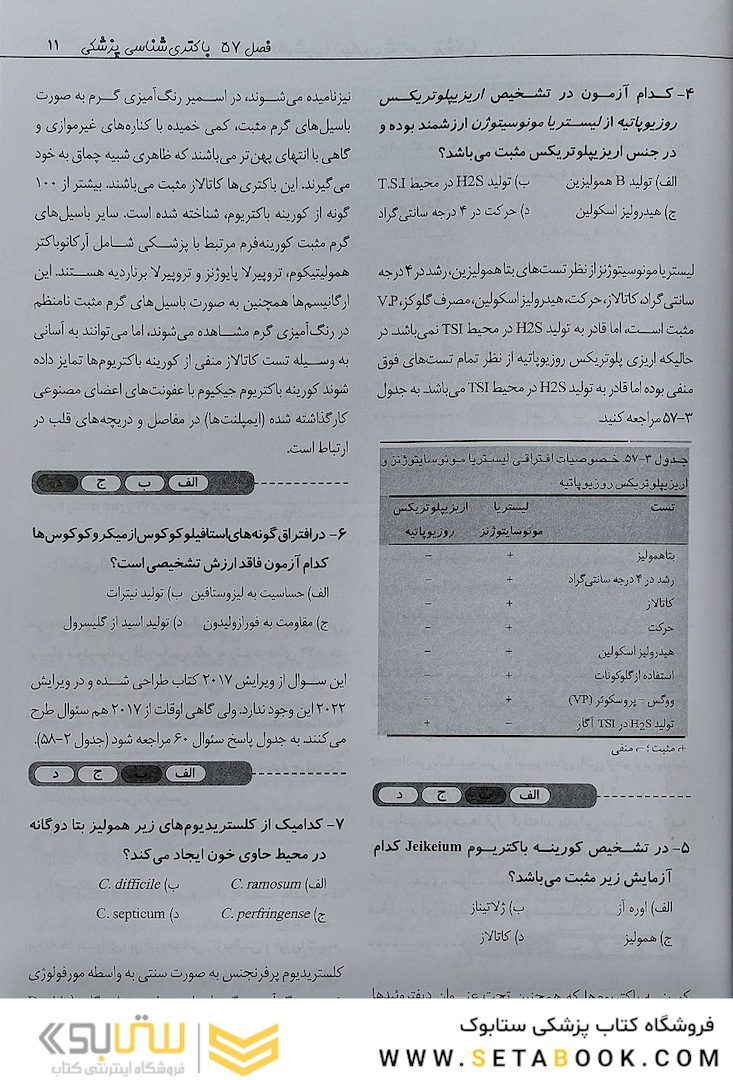 فصل ۵۷ باکتری شناسی پزشکی ۱۱
۴- کدام آزمون در تشخیص اریزیپلوتریکس
روزیوپاتیه از لیستریا مونوسیتوژن ارزشمند بوده و
در جنس اریزیپلوتریکس مثبت می‌باشد؟
الف) تولید B همولیزین ب) تولید H2S در محیط T.S.I
ج) هیدرولیز اسکولین د) حرکت در ۴ درجه سانتی‌گراد
لیستریا مونوسیتوژنز از نظر تست‌های بتا همولیزین، رشد در ۴ درجه
سانتی گراد، کاتالاز، حرکت، هیدرولیز اسکولین، مصرف گلوکز، V.P
مثبت است، اما قادر به تولید H2S در محیط TSI نمی‌باشد. در
حالیکه اریزی پلوتریکس روزیوپاتیه از نظر تمام تست‌های فوق
منفی بوده اما قادر به تولید H2S در محیط TSI می‌باشد. به جدول
۳-۵۷ مراجعه کنید.
جدول ۳-۵۷. خصوصیات افتراقی لیستریا مونوسایتوژنز و
اریزیپلوتریکس روزیوپاتیه
تست لیستریا اریزیپلوتریکس
مونوسایتوژنز روزیوپاتیه
بتاهمولیز + −
رشد در ۴ درجه سانتی‌گراد + −
کاتالاز + −
حرکت + −
هیدرولیز اسکولین + −
استفاده از گلوکونات + −
ووگس - پروسکوئر (VP) + −
تولید H2S در TSI آگار − +
+، مثبت؛ −، منفی
الف ب ج د
۵- در تشخیص کورینه باکتریوم Jeikeium کدام
آزمایش زیر مثبت می‌باشد؟
الف) اوره آز ب) ژلاتیناز
ج) همولیز د) کاتالاز
کورینه باکتریوم‌ها که همچنین تحت عنوان دیفتروئیدها
نیز نامیده می‌شوند، در اسمیر رنگ‌آمیزی گرم به صورت
باسیل‌های گرم مثبت، کمی خمیده با کناره‌های غیرموازی و
گاهی با انتهای پهن‌تر می‌باشند که ظاهری شبیه چماق به خود
می‌گیرند. این باکتری‌ها کاتالاز مثبت می‌باشند. بیشتر از ۱۰۰
گونه از کورینه باکتریوم، شناخته شده است. سایر باسیل‌های
گرم مثبت کورینه‌فرم مرتبط با پزشکی شامل آرکانوباکتر
همولیتیکوم، تروپیرلا پایوژنز و تروپیرلا برنارديه هستند. این
ارگانیسم‌ها همچنین به صورت باسیل‌های گرم مثبت نامنظم
در رنگ‌آمیزی گرم مشاهده می‌شوند، اما می‌توانند به آسانی
به وسیله تست کاتالاز منفی از کورینه باکتریوم‌ها تمایز داده
شوند کورینه باکتریوم جیکیوم با عفونت‌های اعضای مصنوعی
کارگذاشته شده (ایمپلنت‌ها) در مفاصل و دریچه‌های قلب در
ارتباط است.
الف ب ج د
۶- در افتراق گونه‌های استافیلوکوکوس از میکروکوکوس‌ها
کدام آزمون فاقد ارزش تشخیصی است؟
الف) حساسیت به لیزوستافین ب) تولید نیترات
ج) مقاومت به فورازولیدون د) تولید اسید از گلیسرول
این سوال از ویرایش ۲۰۱۷ کتاب طراحی شده و در ویرایش
۲۰۲۲ این وجود ندارد. ولی گاهی اوقات از ۲۰۱۷ هم سئوال طرح
می‌کنند. به جدول پاسخ سئوال ۶۰ مراجعه شود (جدول ۲-۵۸).
الف ب ج د
۷- کدامیک از کلستریدیوم‌های زیر همولیز بتا دوگانه
در محیط حاوی خون ایجاد می‌کند؟
الف) C. ramosum ب) C. difficile
ج) C. perfringense د) C. septicum
کلستریدیوم پرفرنجنس به صورت سنتی به واسطه مورفولوژی
فروشگاه کتاب پزشکی ستابوک
WWW.SETABOOK.COM
ستابوک
فروشگاه اینترنتی کتاب